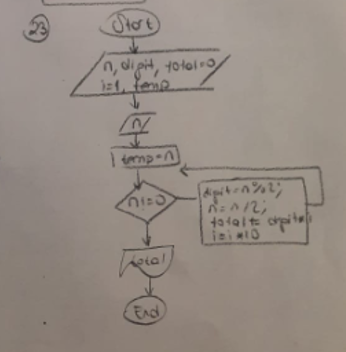 23
Start
n, digit, total=0
i=1, temp
n
temp=n
n!=0
digit=n%2;
n=n/2;
total+=digit*i
i=i*10
total
End